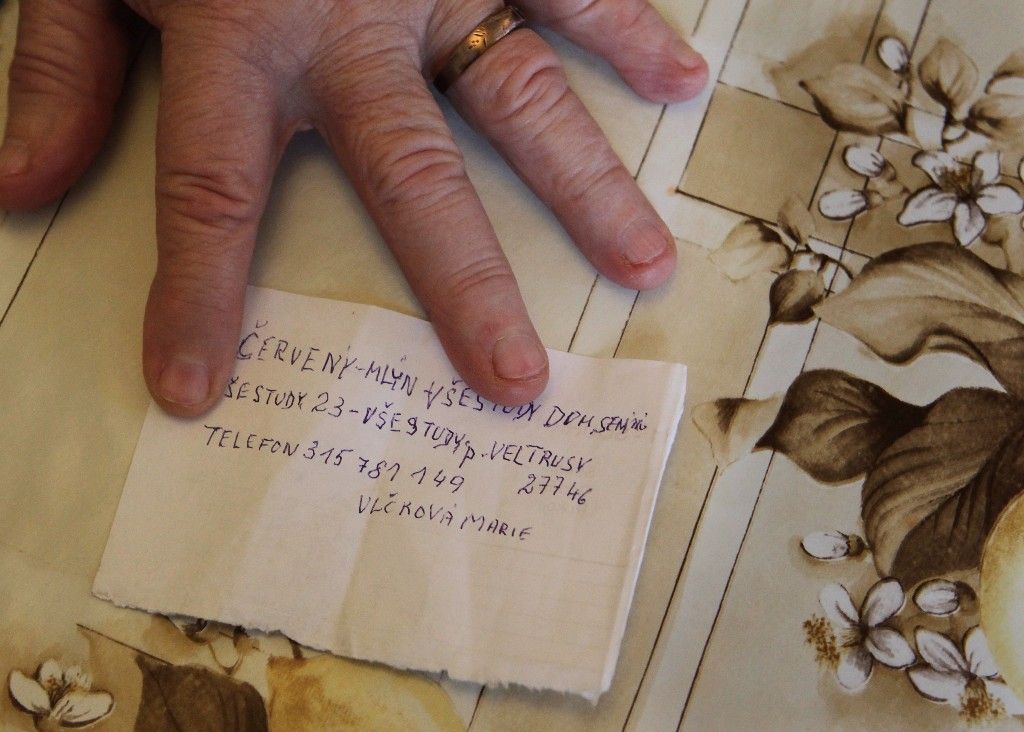 ČERVENÝ-MLÝN VŠESTUDY DOM,SENIORŮ
VŠESTUDY 23-VŠESTUDY p.-VELTRUSY
TELEFON 315 781 149 27746
VLČKOVÁ MARIE